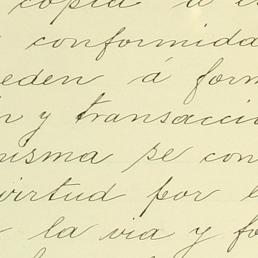 copia á
conformida
eden á form
n y transacci
misma se con
virtud por e
la via y fo